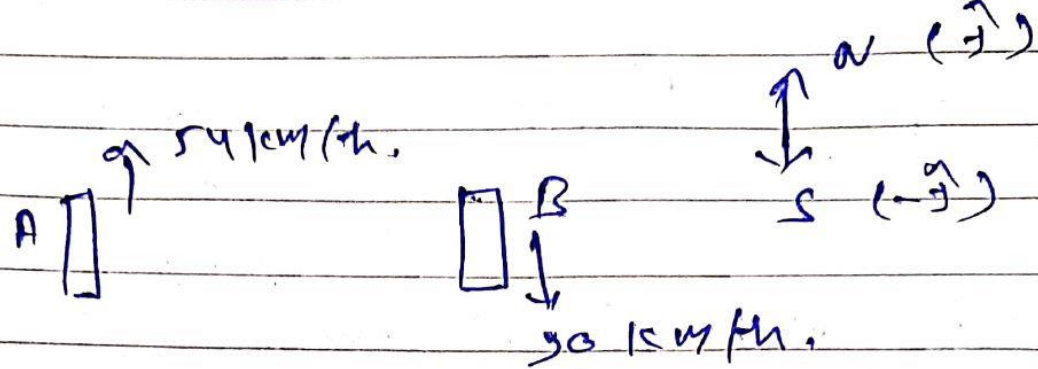 N (ĵ)
54 km/h.
A
B
S (-ĵ)
90 km/h.